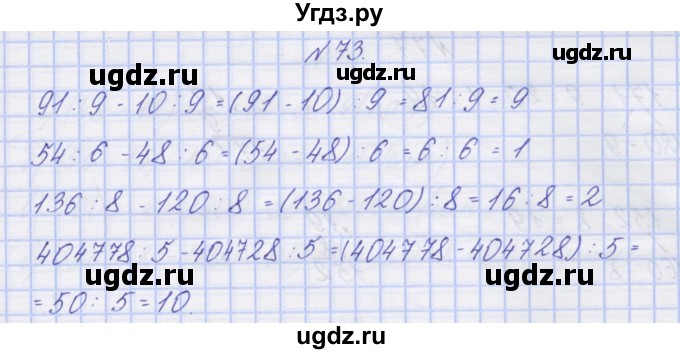 Угдз.ру
N 73.
ugdz.ru ugdz.ru
91 : 9 - 10 : 9 = (91 - 10) : 9 = 81 : 9 = 9
ugdz.ru
54 : 6 - 48 : 6 = (54 - 48) : 6 = 6 : 6 = 1
ugdz.ru ugdz.ru
136 : 8 - 120 : 8 = (136 - 120) : 8 = 16 : 8 = 2
ugdz.ru
404778 : 5 - 404728 : 5 = (404778 - 404728) : 5 =
ugdz.ru ugdz.ru
= 50 : 5 = 10.
ugdz.ru